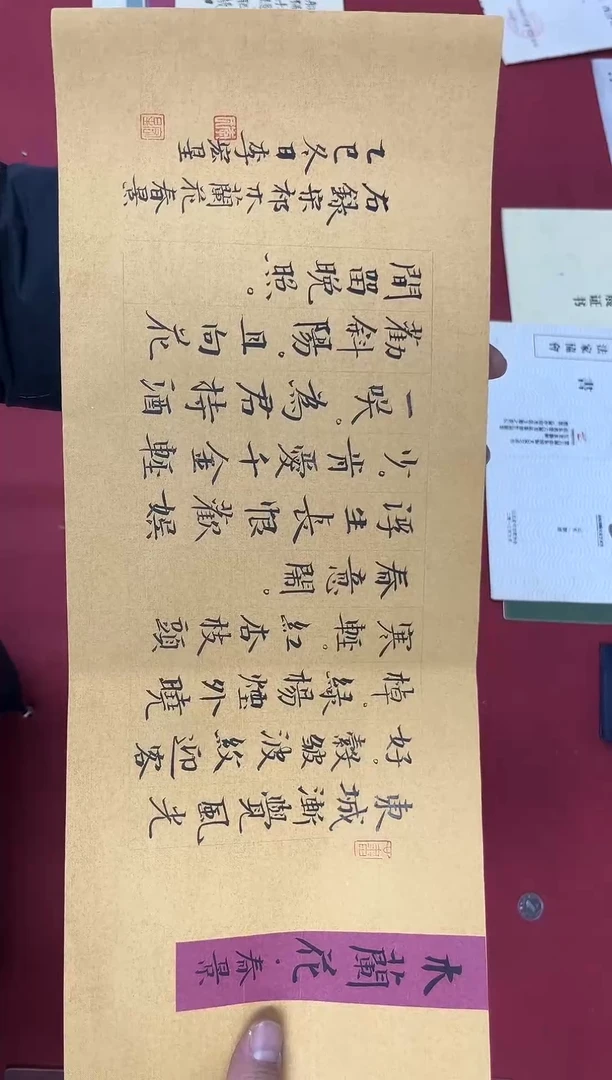 木蘭花·春景
東城漸覺風光
好。縠皺波紋迎客
棹。綠楊煙外曉
寒輕。紅杏枝頭
春意鬧。
浮生長恨歡娛
少。肯愛千金輕
一笑。為君持酒
勸斜陽。且向花
間留晚照。
右錄宋祁木蘭花春景
乙巳冬日李宏星
書
法家協會